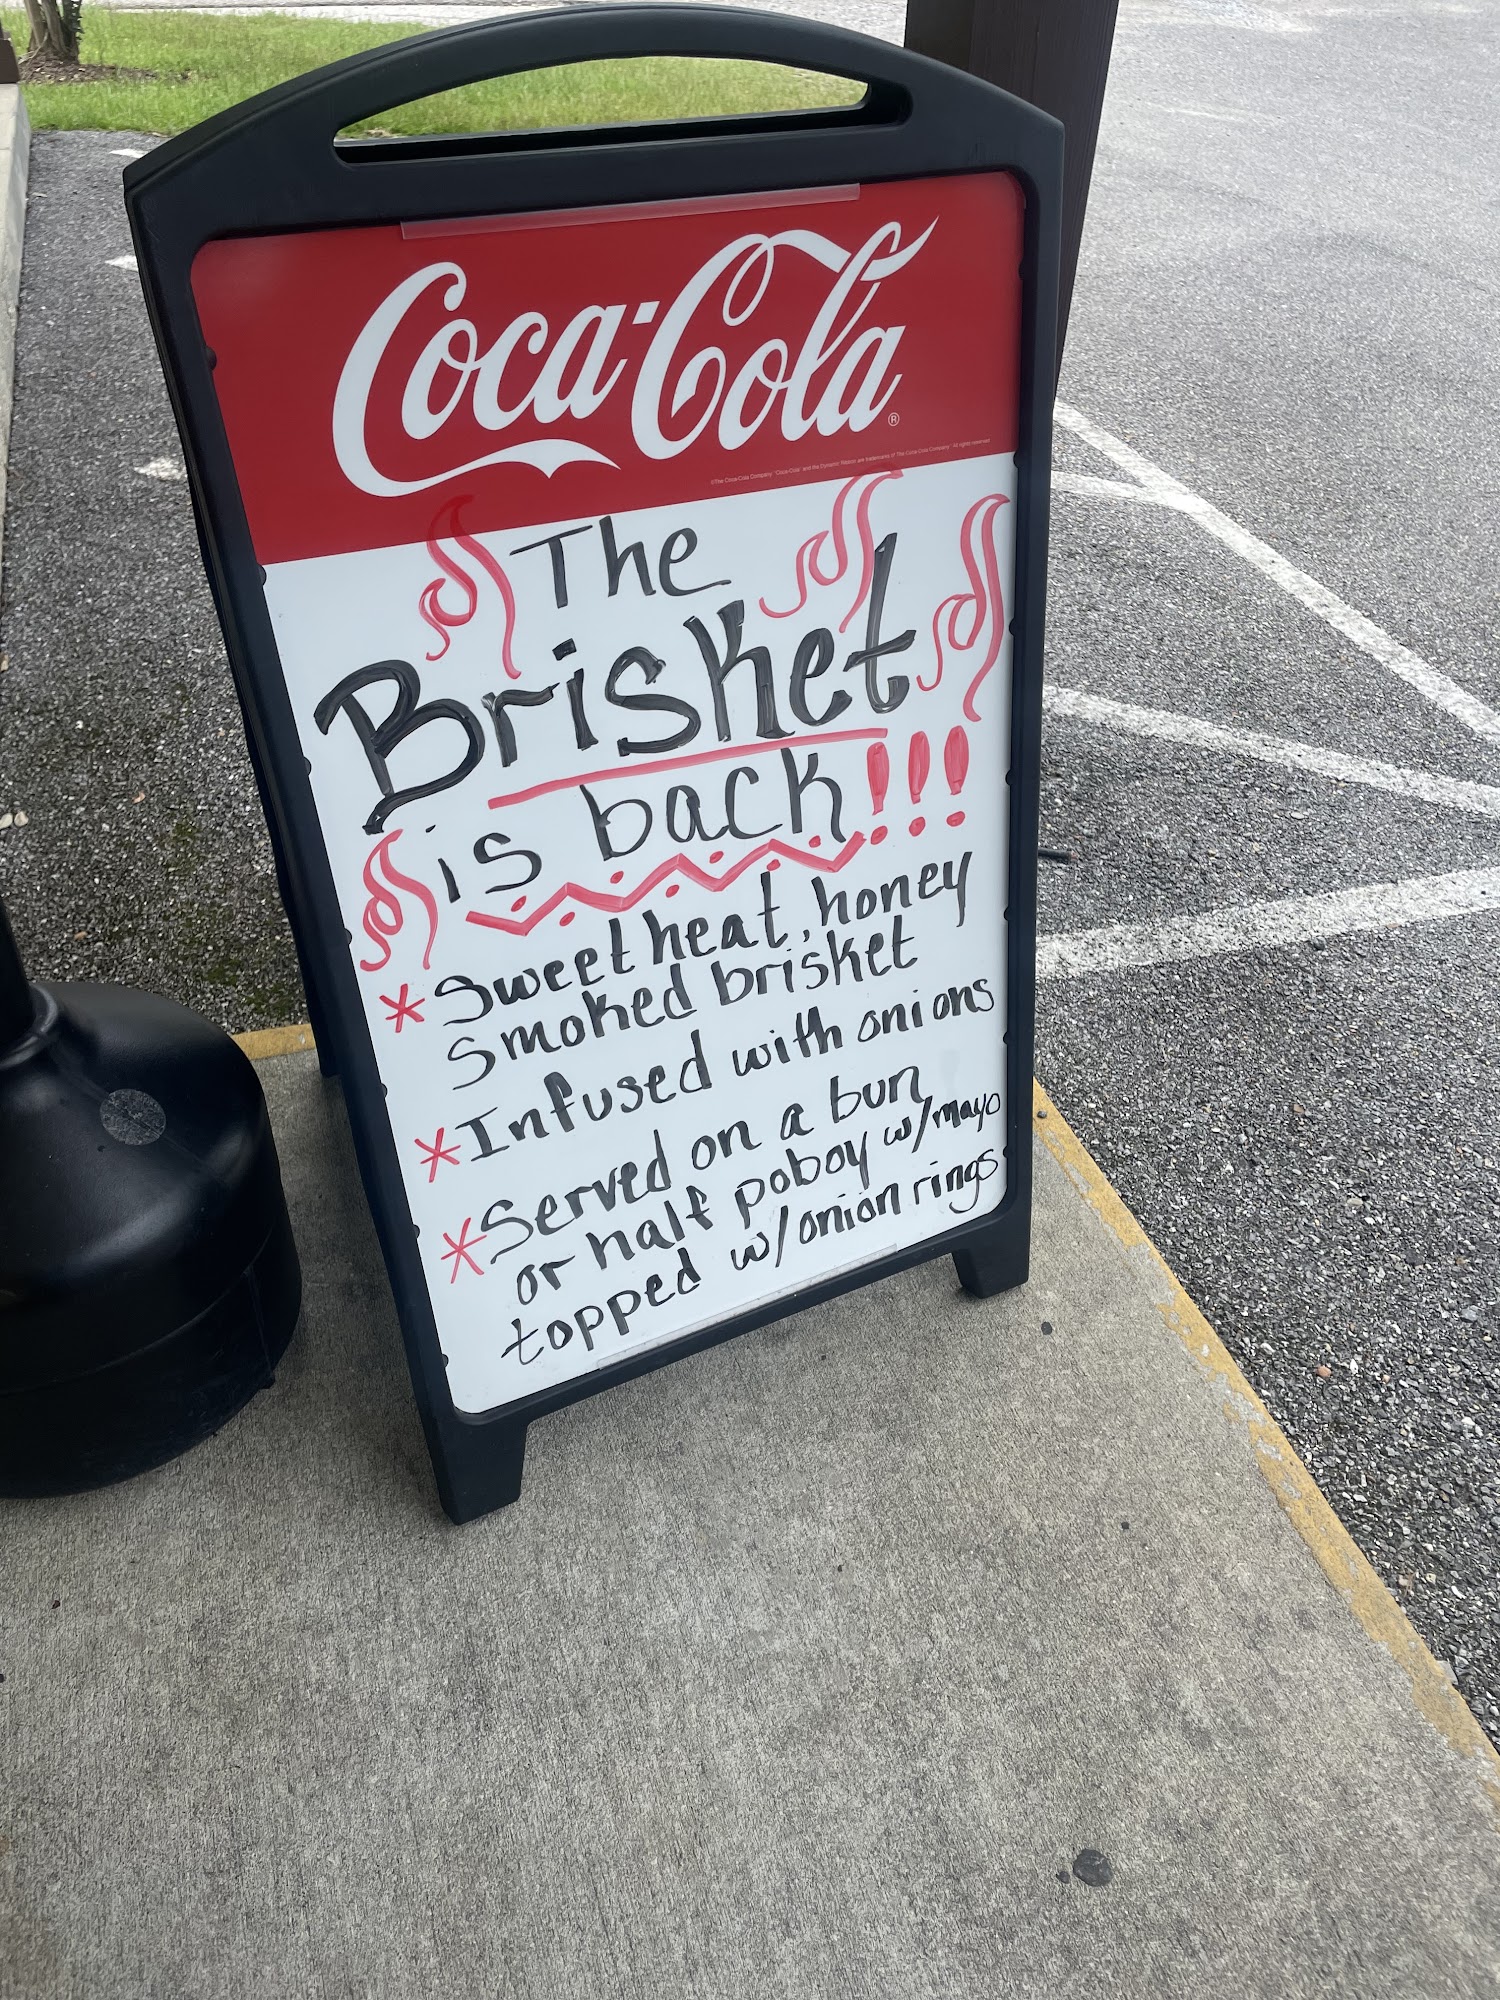 Coca-Cola
®
©The Coca-Cola Company. "Coca-Cola" and the Dynamic Ribbon are trademarks of The Coca-Cola Company. All rights reserved.
The
Brisket
is back!!!
* Sweet heat, honey
smoked brisket
* Infused with onions
* Served on a bun
or half poboy w/mayo
topped w/onion rings